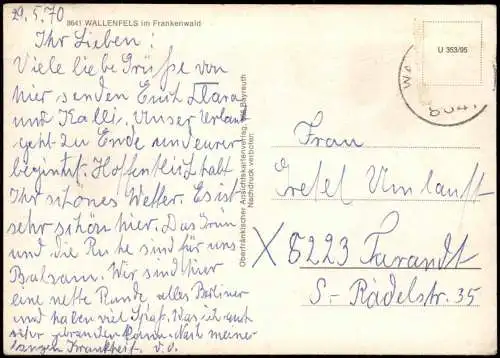 29.5.70
8641 WALLENFELS im Frankenwald
Ihr Lieben!
Viele liebe Grüße von
hier senden Euch Klara
und Kalli. Unser Urlaub
geht zu Ende und eurer
beginnt. Hoffentlich habt
Ihr schönes Wetter. Es ist
sehr schön hier. Das Grün
und die Ruhe sind für uns
Balsam. Wir sind hier
eine nette Runde, alles Berliner
und haben viel Spaß. Was ich gut
brauchen kann nach meiner
langen Krankheit.
Oberfränkischer Ansichtskartenverlag, Bayreuth
Nachdruck verboten.
U 353/95
8641
Frau
Gretel Umlauft
X 8223 Tarandt
S.-Rädelstr. 35